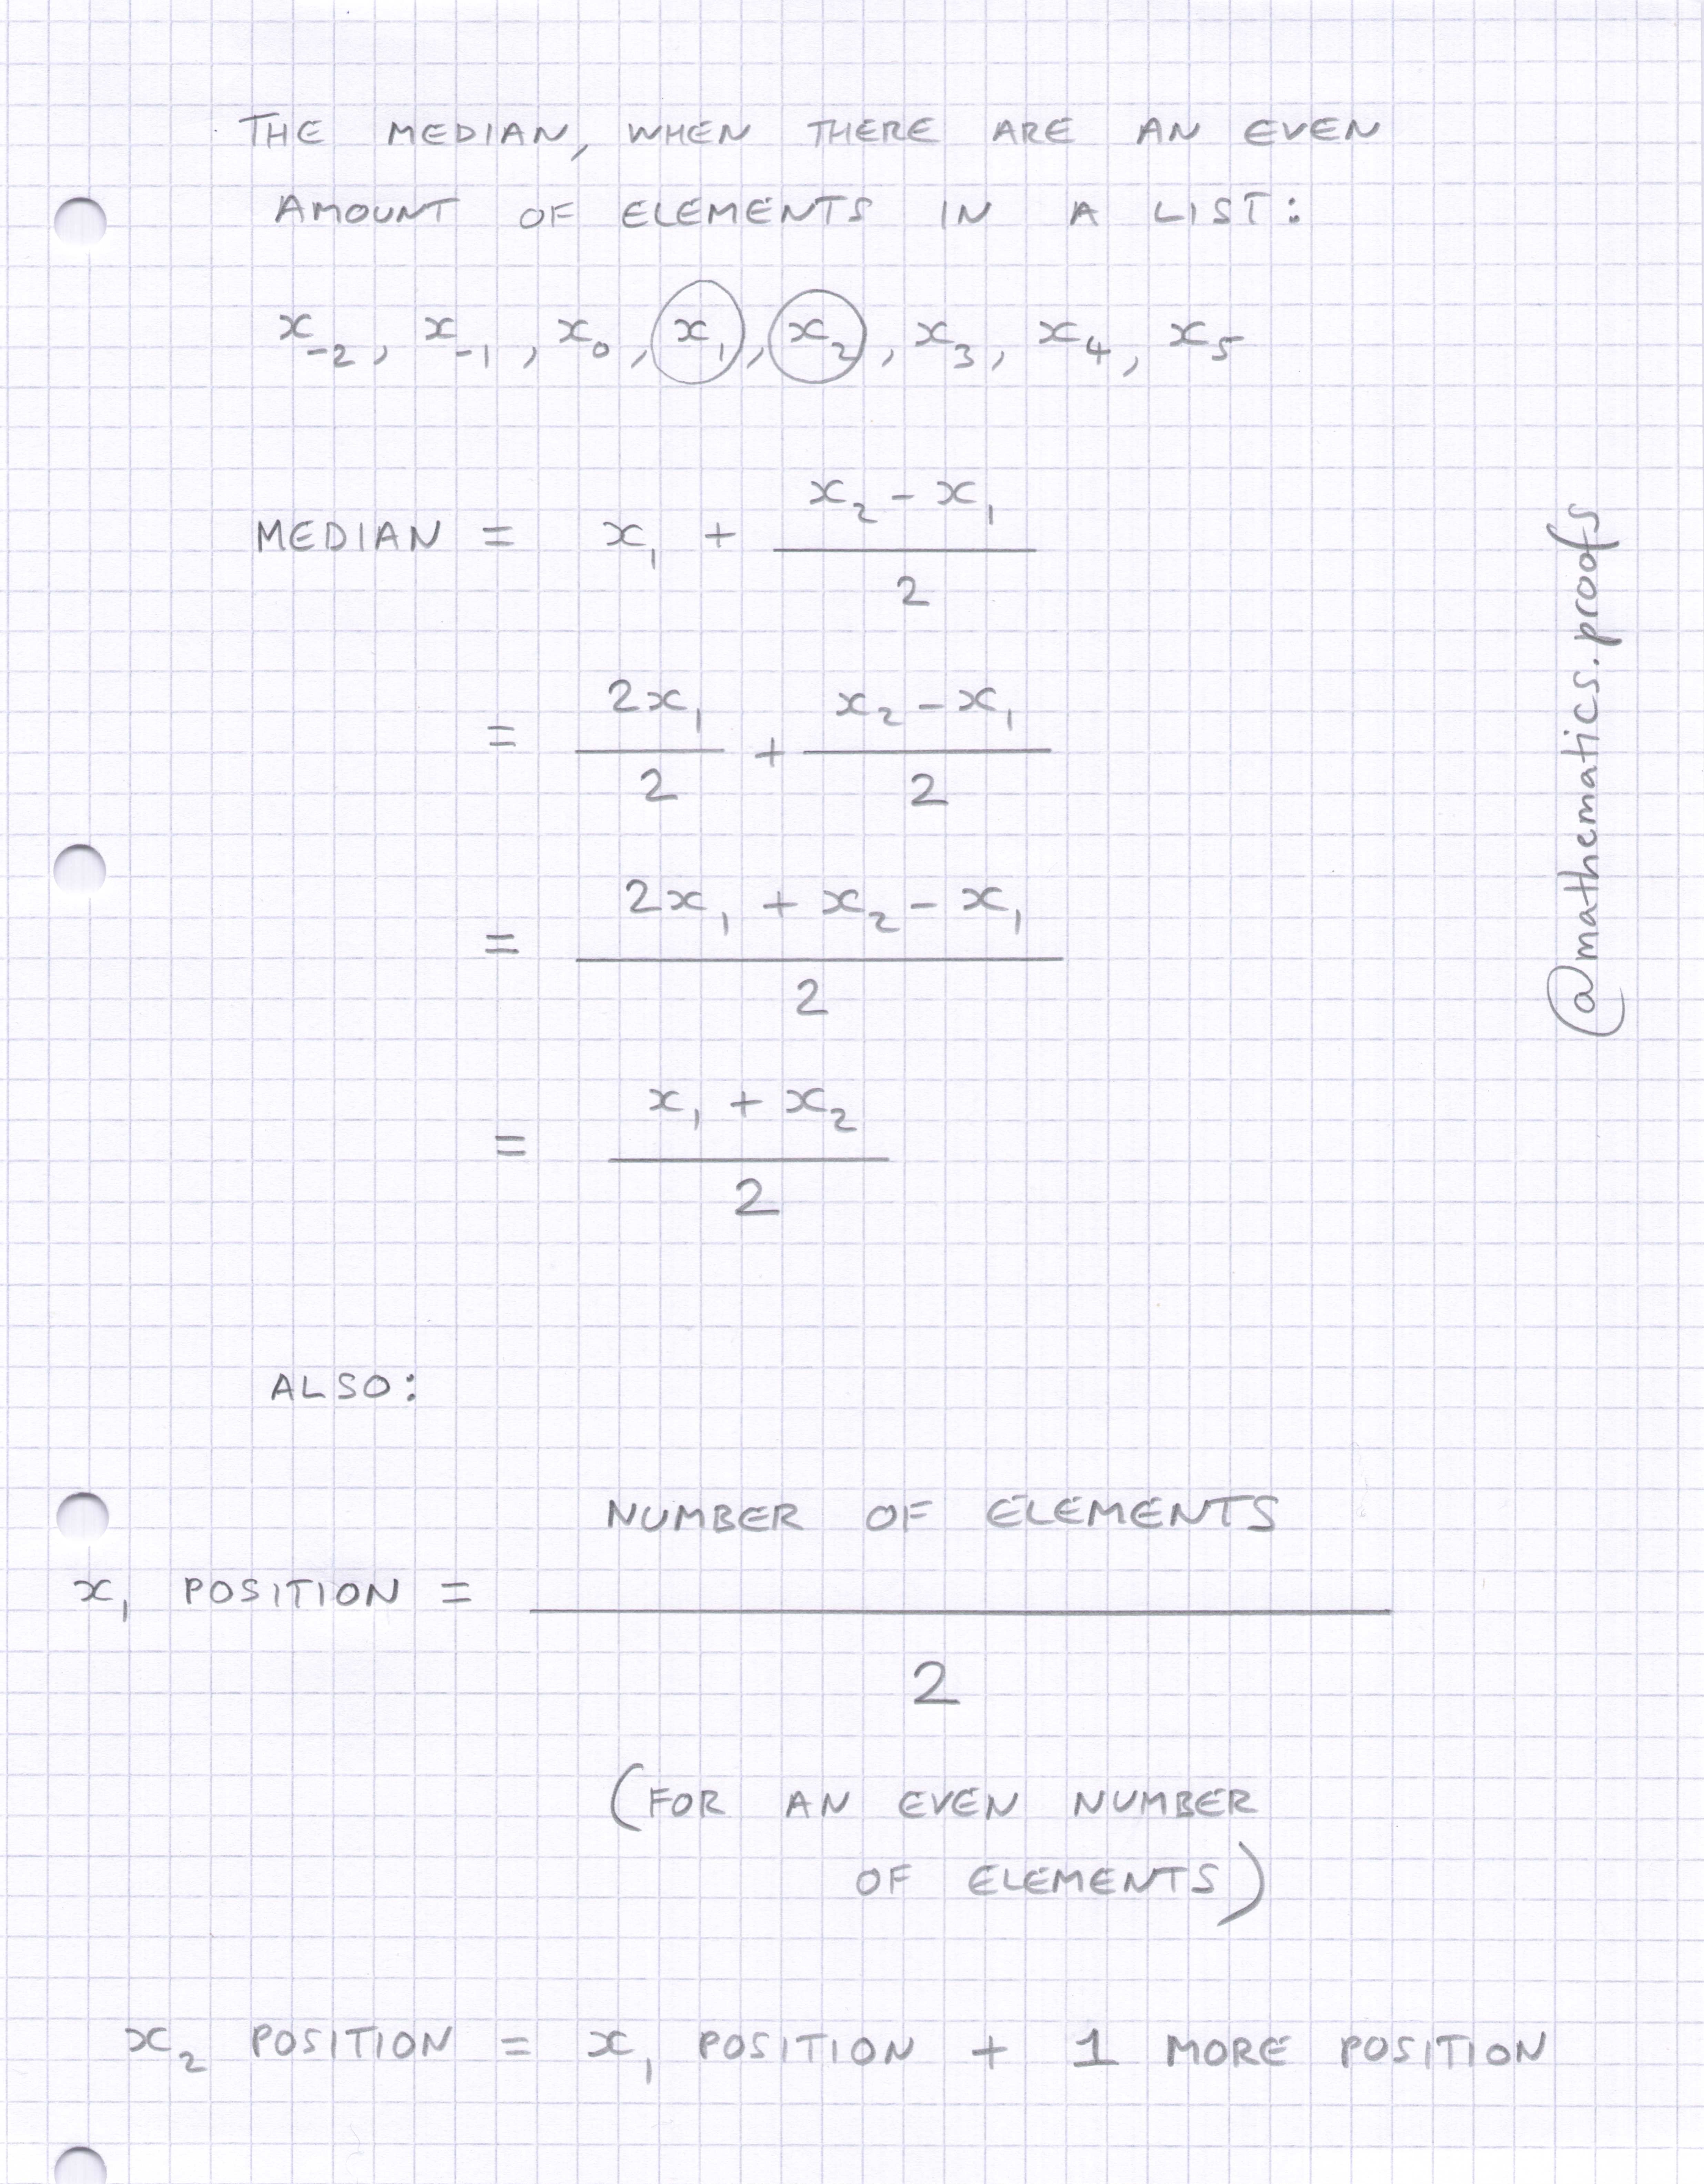 THE MEDIAN, WHEN THERE ARE AN EVEN
AMOUNT OF ELEMENTS IN A LIST:
x₋₂, x₋₁, x₀, x₁, x₂, x₃, x₄, x₅
MEDIAN = x₁ + (x₂ - x₁)/2
= 2x₁/2 + (x₂ - x₁)/2
= (2x₁ + x₂ - x₁)/2
= (x₁ + x₂)/2
ALSO:
x₁ POSITION = NUMBER OF ELEMENTS / 2
(FOR AN EVEN NUMBER
OF ELEMENTS)
x₂ POSITION = x₁ POSITION + 1 MORE POSITION
@mathematics.proofs